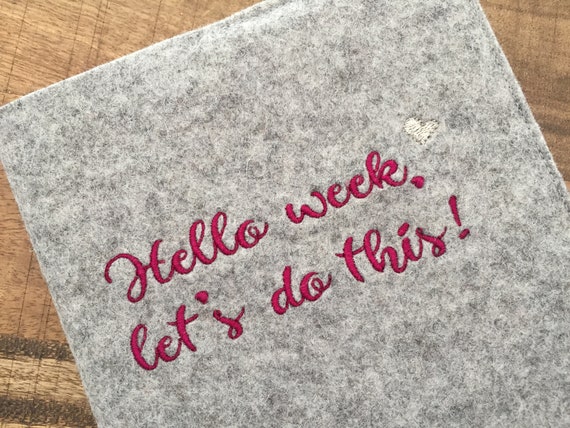 Hello week,
let's do this!